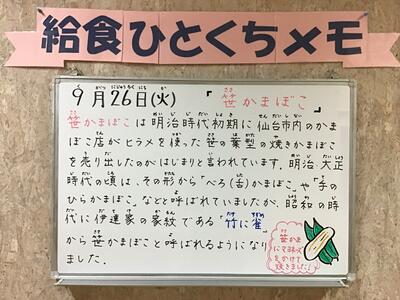 給食ひとくちメモ
9月26日(火) 「笹かまぼこ」
笹かまぼこは明治時代初期に仙台市内のかま
ぼこ店がヒラメを使った笹の葉型の焼きかまぼこ
を売り出したのがはじまりと言われています。明治・大正
時代の頃は、その形から「べろ(舌)かまぼこ」や「手の
ひらかまぼこ」などと呼ばれていましたが、昭和の時
代に伊達家の家紋である「竹に雀」
から笹かまぼこと呼ばれるようになり
ました。
笹かま
にマヨネーズ
をかけて
焼きました!